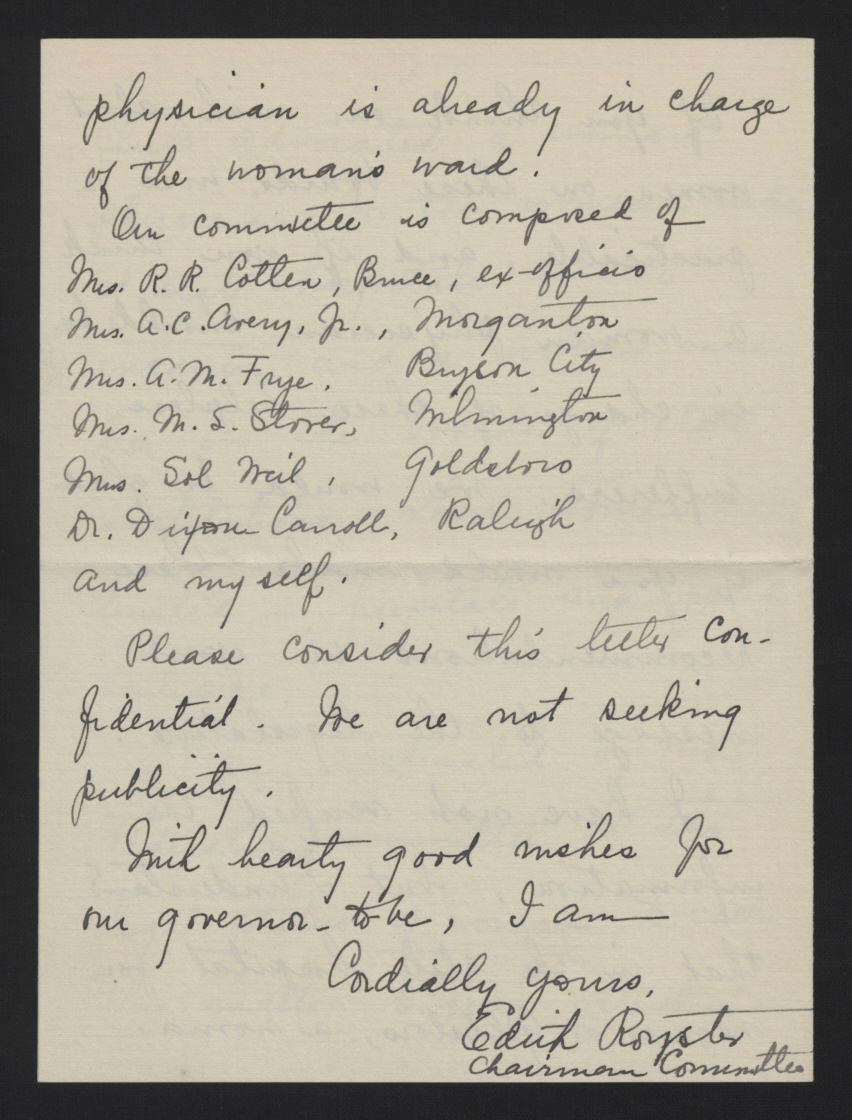 physician is already in charge
of the woman's ward.
Our committee is composed of
Mrs. R. R. Cotten, Bruce, ex-officio
Mrs. A. C. Avery, Jr., Morganton
Mrs. A. M. Frye, Bryson City
Mrs. M. S. Stover, Wilmington
Mrs. Sol Weil, Goldsboro
Dr. Dixon Carroll, Raleigh
and myself.
Please consider this letter con-
fidential. We are not seeking
publicity.
With hearty good wishes for
our governor-to-be, I am
Cordially yours,
Edith Royster
Chairman Committee